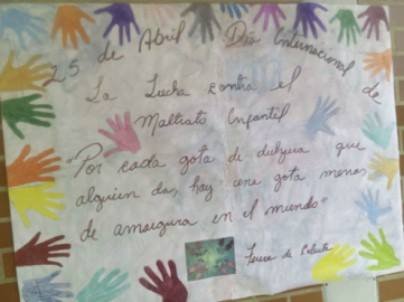 25 de Abril Día Internacional de
La Lucha contra el
Maltrato Infantil
"Por cada gota de dulzura que
alguien da, hay una gota menos
de amargura en el mundo"
Teresa de Calcuta